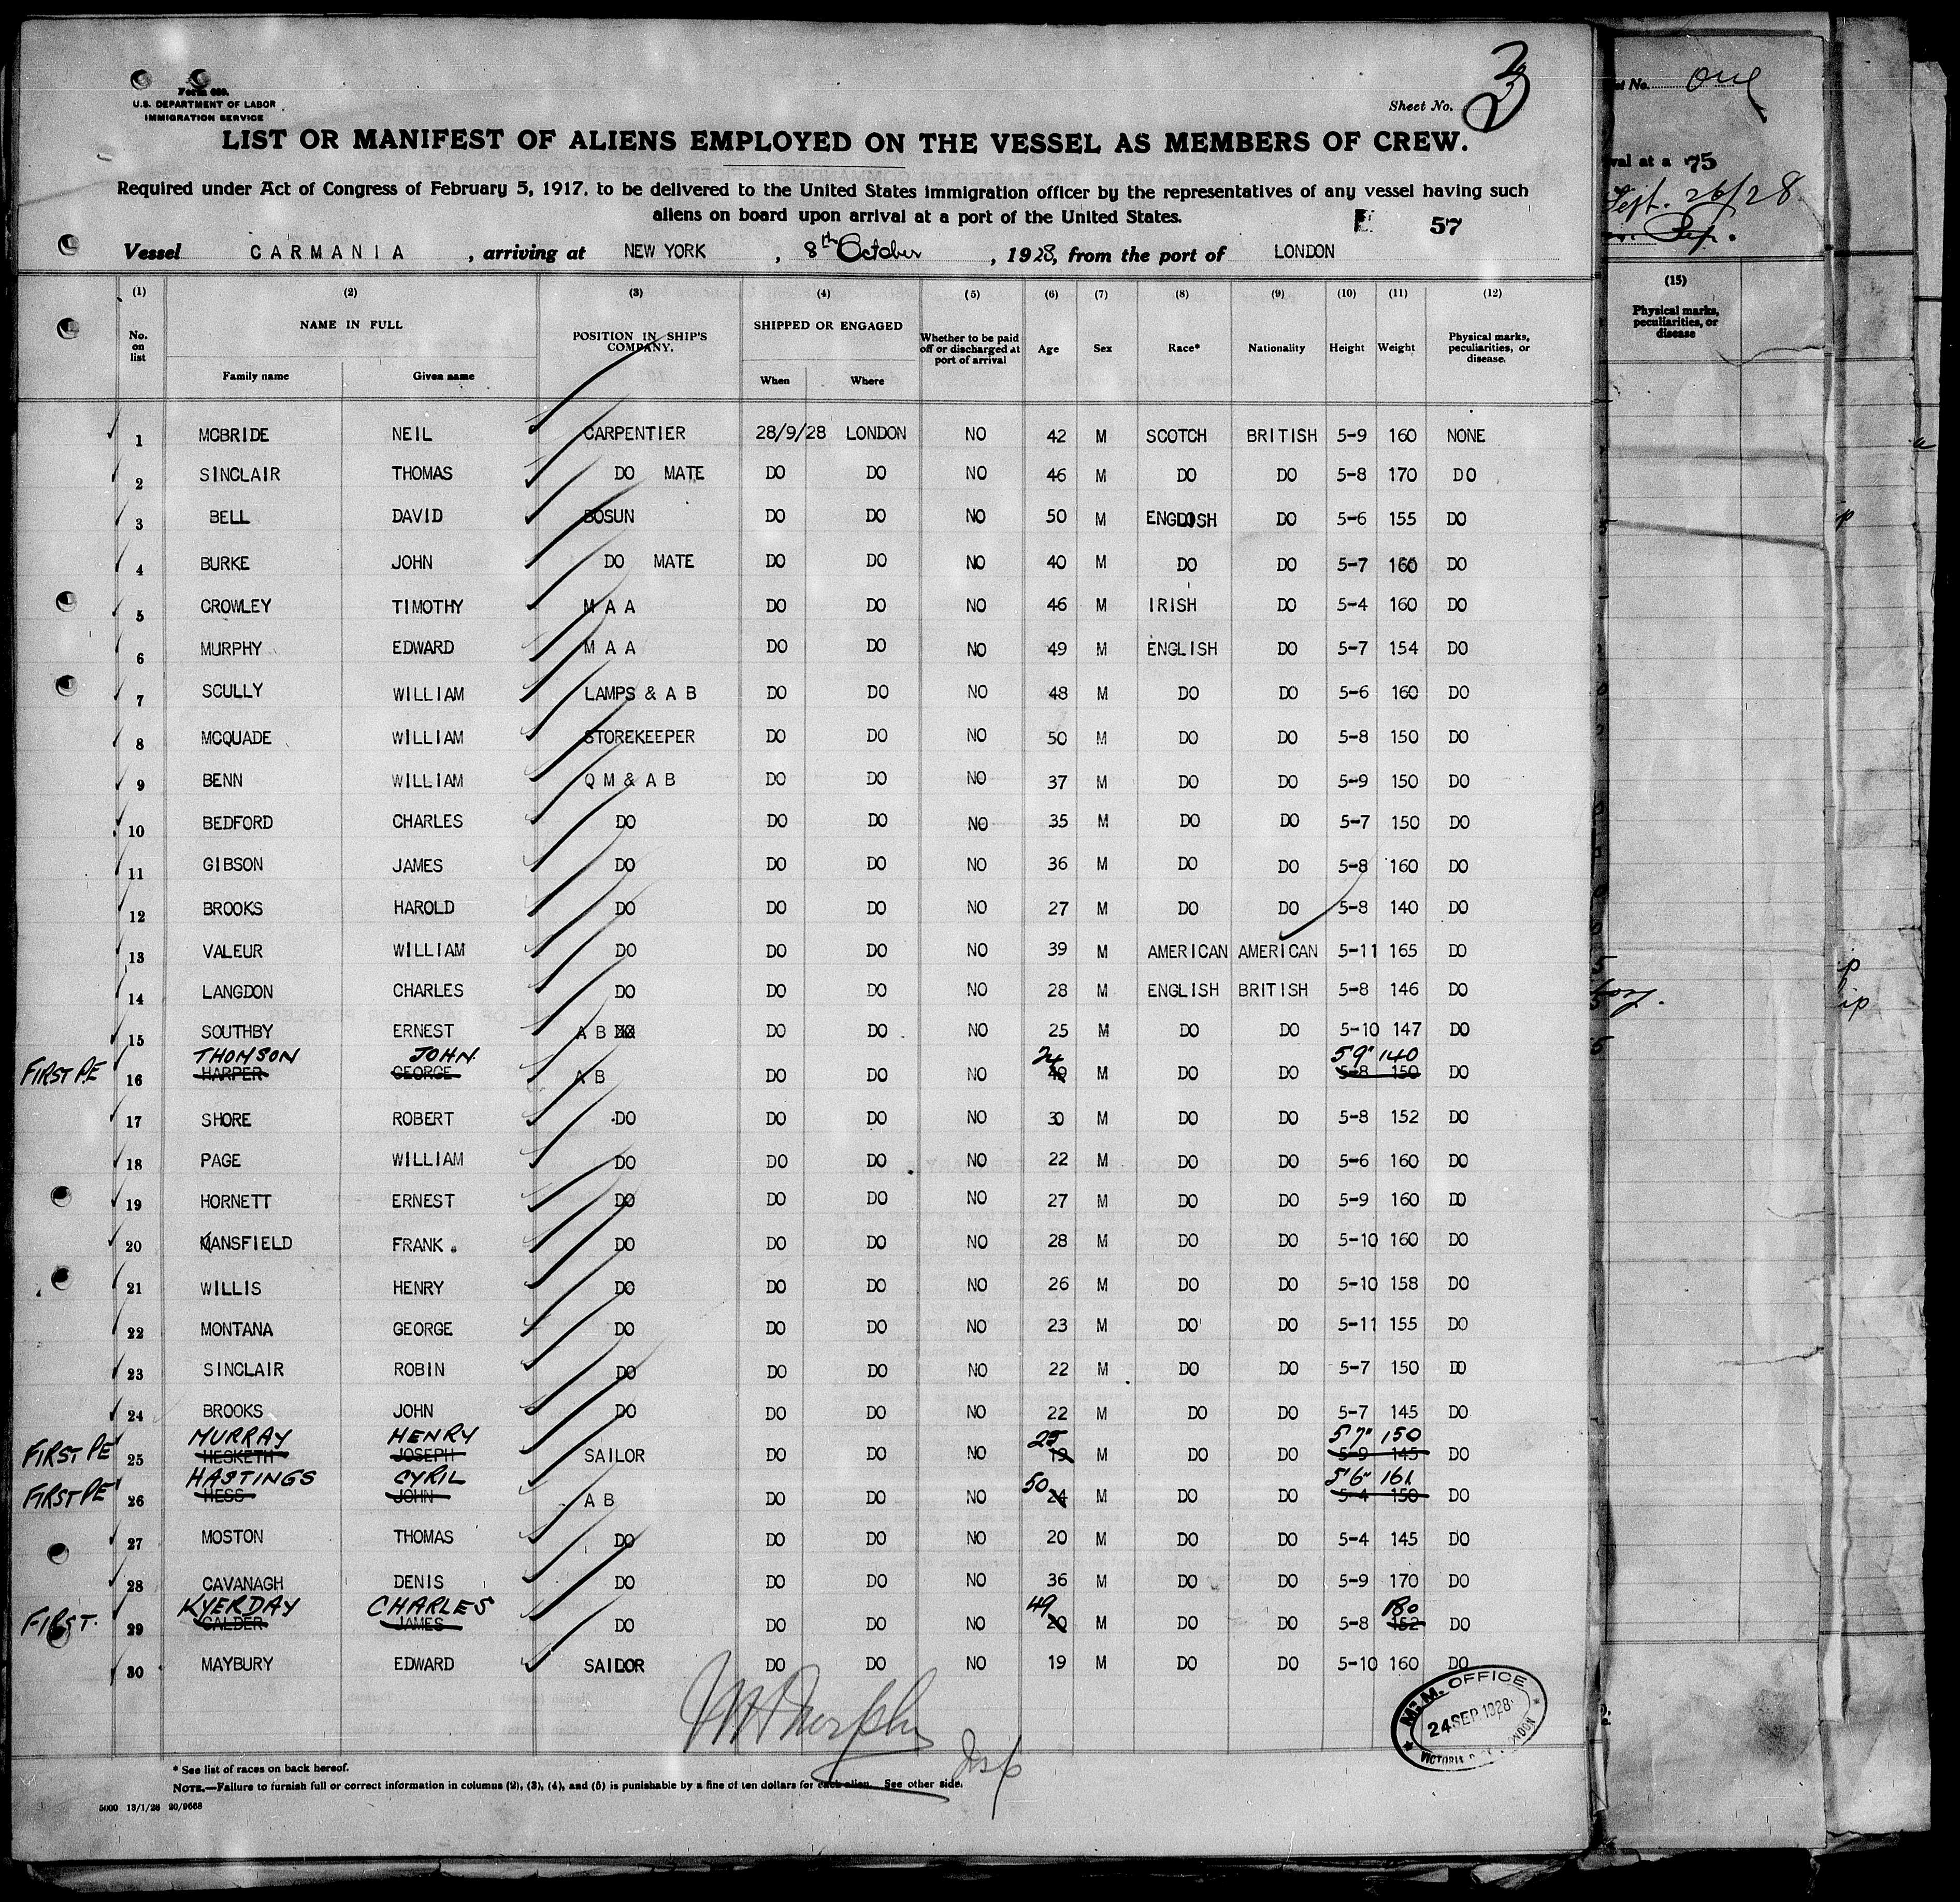 Form 689.
U.S. DEPARTMENT OF LABOR
IMMIGRATION SERVICE
Sheet No. 3
LIST OR MANIFEST OF ALIENS EMPLOYED ON THE VESSEL AS MEMBERS OF CREW.
Required under Act of Congress of February 5, 1917, to be delivered to the United States immigration officer by the representatives of any vessel having such
aliens on board upon arrival at a port of the United States.
57
Vessel CARMANIA, arriving at NEW YORK, 8th October, 1928, from the port of LONDON
(1) (2) (3) (4) (5) (6) (7) (8) (9) (10) (11) (12)
No. on list NAME IN FULL Family name Given name POSITION IN SHIP'S COMPANY. SHIPPED OR ENGAGED When Where Whether to be paid off or discharged at port of arrival Age Sex Race* Nationality Height Weight Physical marks, peculiarities, or disease.
1 MCBRIDE NEIL CARPENTIER 28/9/28 LONDON NO 42 M SCOTCH BRITISH 5-9 160 NONE
2 SINCLAIR THOMAS DO MATE DO DO NO 46 M DO DO 5-8 170 DO
3 BELL DAVID BOSUN DO DO NO 50 M ENGLISH DO 5-6 155 DO
4 BURKE JOHN DO MATE DO DO NO 40 M DO DO 5-7 160 DO
5 CROWLEY TIMOTHY M A A DO DO NO 46 M IRISH DO 5-4 160 DO
6 MURPHY EDWARD M A A DO DO NO 49 M ENGLISH DO 5-7 154 DO
7 SCULLY WILLIAM LAMPS & A B DO DO NO 48 M DO DO 5-6 160 DO
8 MCQUADE WILLIAM STOREKEEPER DO DO NO 50 M DO DO 5-8 150 DO
9 BENN WILLIAM Q M & A B DO DO NO 37 M DO DO 5-9 150 DO
10 BEDFORD CHARLES DO DO DO NO 35 M DO DO 5-7 150 DO
11 GIBSON JAMES DO DO DO NO 36 M DO DO 5-8 160 DO
12 BROOKS HAROLD DO DO DO NO 27 M DO DO 5-8 140 DO
13 VALEUR WILLIAM DO DO DO NO 39 M AMERICAN AMERICAN 5-11 165 DO
14 LANGDON CHARLES DO DO DO NO 28 M ENGLISH BRITISH 5-8 146 DO
15 SOUTHBY ERNEST A B DO DO NO 25 M DO DO 5-10 147 DO
THOMSON JOHN 24 5'9" 140
FIRST PE 16 HARPER GEORGE A B DO DO NO 49 M DO DO 5-8 150 DO
17 SHORE ROBERT DO DO DO NO 30 M DO DO 5-8 152 DO
18 PAGE WILLIAM DO DO DO NO 22 M DO DO 5-6 160 DO
19 HORNETT ERNEST DO DO DO NO 27 M DO DO 5-9 160 DO
20 MANSFIELD FRANK. DO DO DO NO 28 M DO DO 5-10 160 DO
21 WILLIS HENRY DO DO DO NO 26 M DO DO 5-10 158 DO
22 MONTANA GEORGE DO DO DO NO 23 M DO DO 5-11 155 DO
23 SINCLAIR ROBIN DO DO DO NO 22 M DO DO 5-7 150 DO
24 BROOKS JOHN DO DO DO NO 22 M DO DO 5-7 145 DO
MURRAY HENRY 25 5'7" 150
FIRST PE 25 HESKETH JOSEPH SAILOR DO DO NO 19 M DO DO 5-9 145 DO
HASTINGS CYRIL 50 5'6" 161
FIRST PE 26 HESS JOHN A B DO DO NO 24 M DO DO 5-4 150 DO
27 MOSTON THOMAS DO DO DO NO 20 M DO DO 5-4 145 DO
28 CAVANAGH DENIS DO DO DO NO 36 M DO DO 5-9 170 DO
KYERDAY CHARLES 49 180
FIRST. 29 CALDER JAMES DO DO DO NO 20 M DO DO 5-8 152 DO
30 MAYBURY EDWARD SAILOR DO DO NO 19 M DO DO 5-10 160 DO
M.M. OFFICE
24 SEP. 1928
VICTORIA LONDON
* See list of races on back hereof.
NOTE.—Failure to furnish full or correct information in columns (2), (3), (4), and (5) is punishable by a fine of ten dollars for each alien. See other side.
5000 13/1/28 20/9668
No. One
val at a 75
Sept. 26/28
(15)
Physical marks, peculiarities, or disease